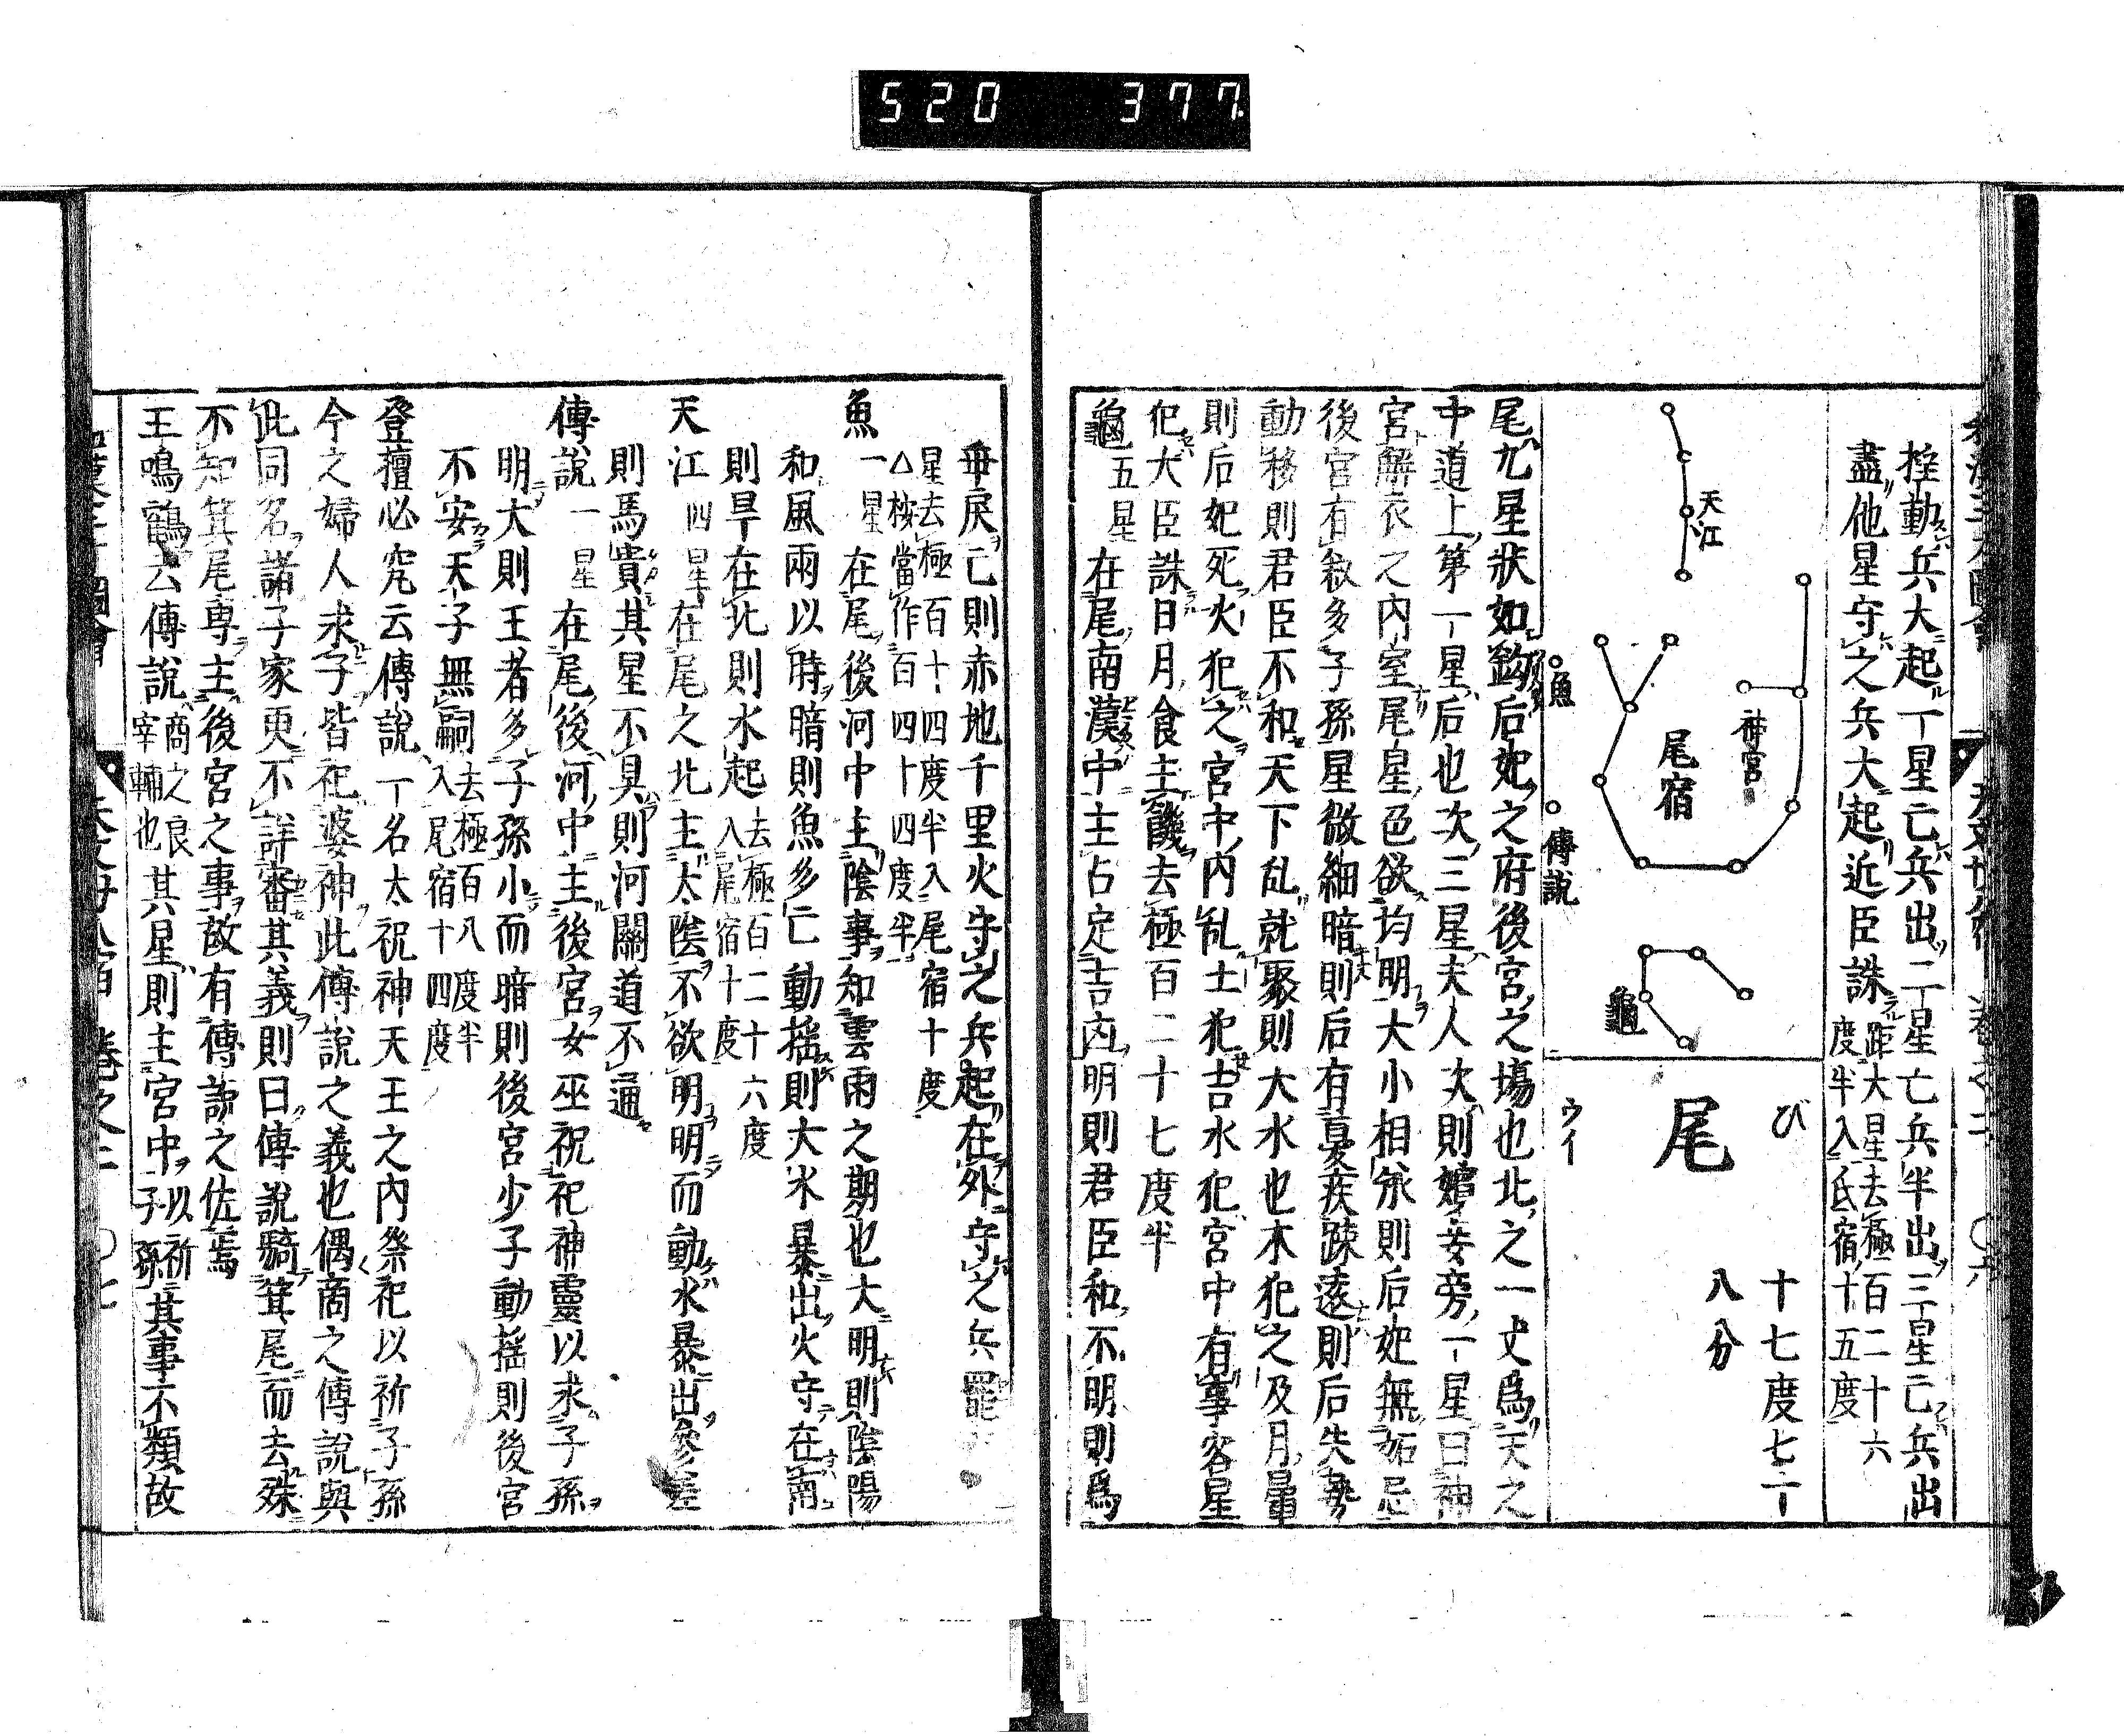 520 377
天文廿八宿 卷之二 〇六
揺動兵大起一星亡兵出二星亡兵半出三星亡兵出
盡他星守之兵大起近臣誅
距大星去極百二十六
度半入氐宿十五度
天江
神宮
尾宿
魚
傳說
龜
び
尾
ウイ
十七度七十
八分
尾九星狀如鈎后妃之府後宮之塲也北之一丈爲天之
中道上第一星后也次三星夫人次則嬪妾旁一星曰神
宮解衣之内室尾星色欲均明大小相承則后妃無妬忌
後宮有叙多子孫星微細暗則后有憂疾疎遠則后失勢
動移則君臣不和天下乱就聚則大水也木犯之及月暈
則后妃死火犯之宮中内乱土犯吉水犯宮中有事客星
犯大臣誅日月食主饑去極百二十七度半
龜
五星
在尾南漢中主占定吉凶明則君臣和不明則爲
乖戾亡則赤地千里火守之兵起在外守之兵罷
星去極百十四度半入尾宿十度
△桉當作百四十四度半
魚
一星
在尾後河中主陰事知雲雨之期也大明則陰陽
和風雨以時暗則魚多亡動揺則大水暴出火守在南
則旱在北則水起
去極百二十六度
入尾宿十度
天江
四星
在尾之北主太陰不欲明明而動水暴出參差
則馬貴其星不具則河關道不通
傳說
一星
在尾後河中主後宮女巫祝祀神靈以求子孫
明大則王者多子孫小而暗則後宮少子動揺則後宮
不安天子無嗣
去極百八度半
入尾宿十四度
登壇必究云傳說一名太祝神天王之内祭祀以祈子孫
今之婦人求子皆祀婆神此傳說之義也偶商之傳說與
此同名諸子家更不詳審其義則曰傳說騎箕尾而去殊
不知箕尾専主後宮之事故有傳說之佐焉
王鳴鶴云傳說
商之良
宰輔也
其星則主宮中以祈
子孫其事不類故
天文廿八宿 卷之二 〇七